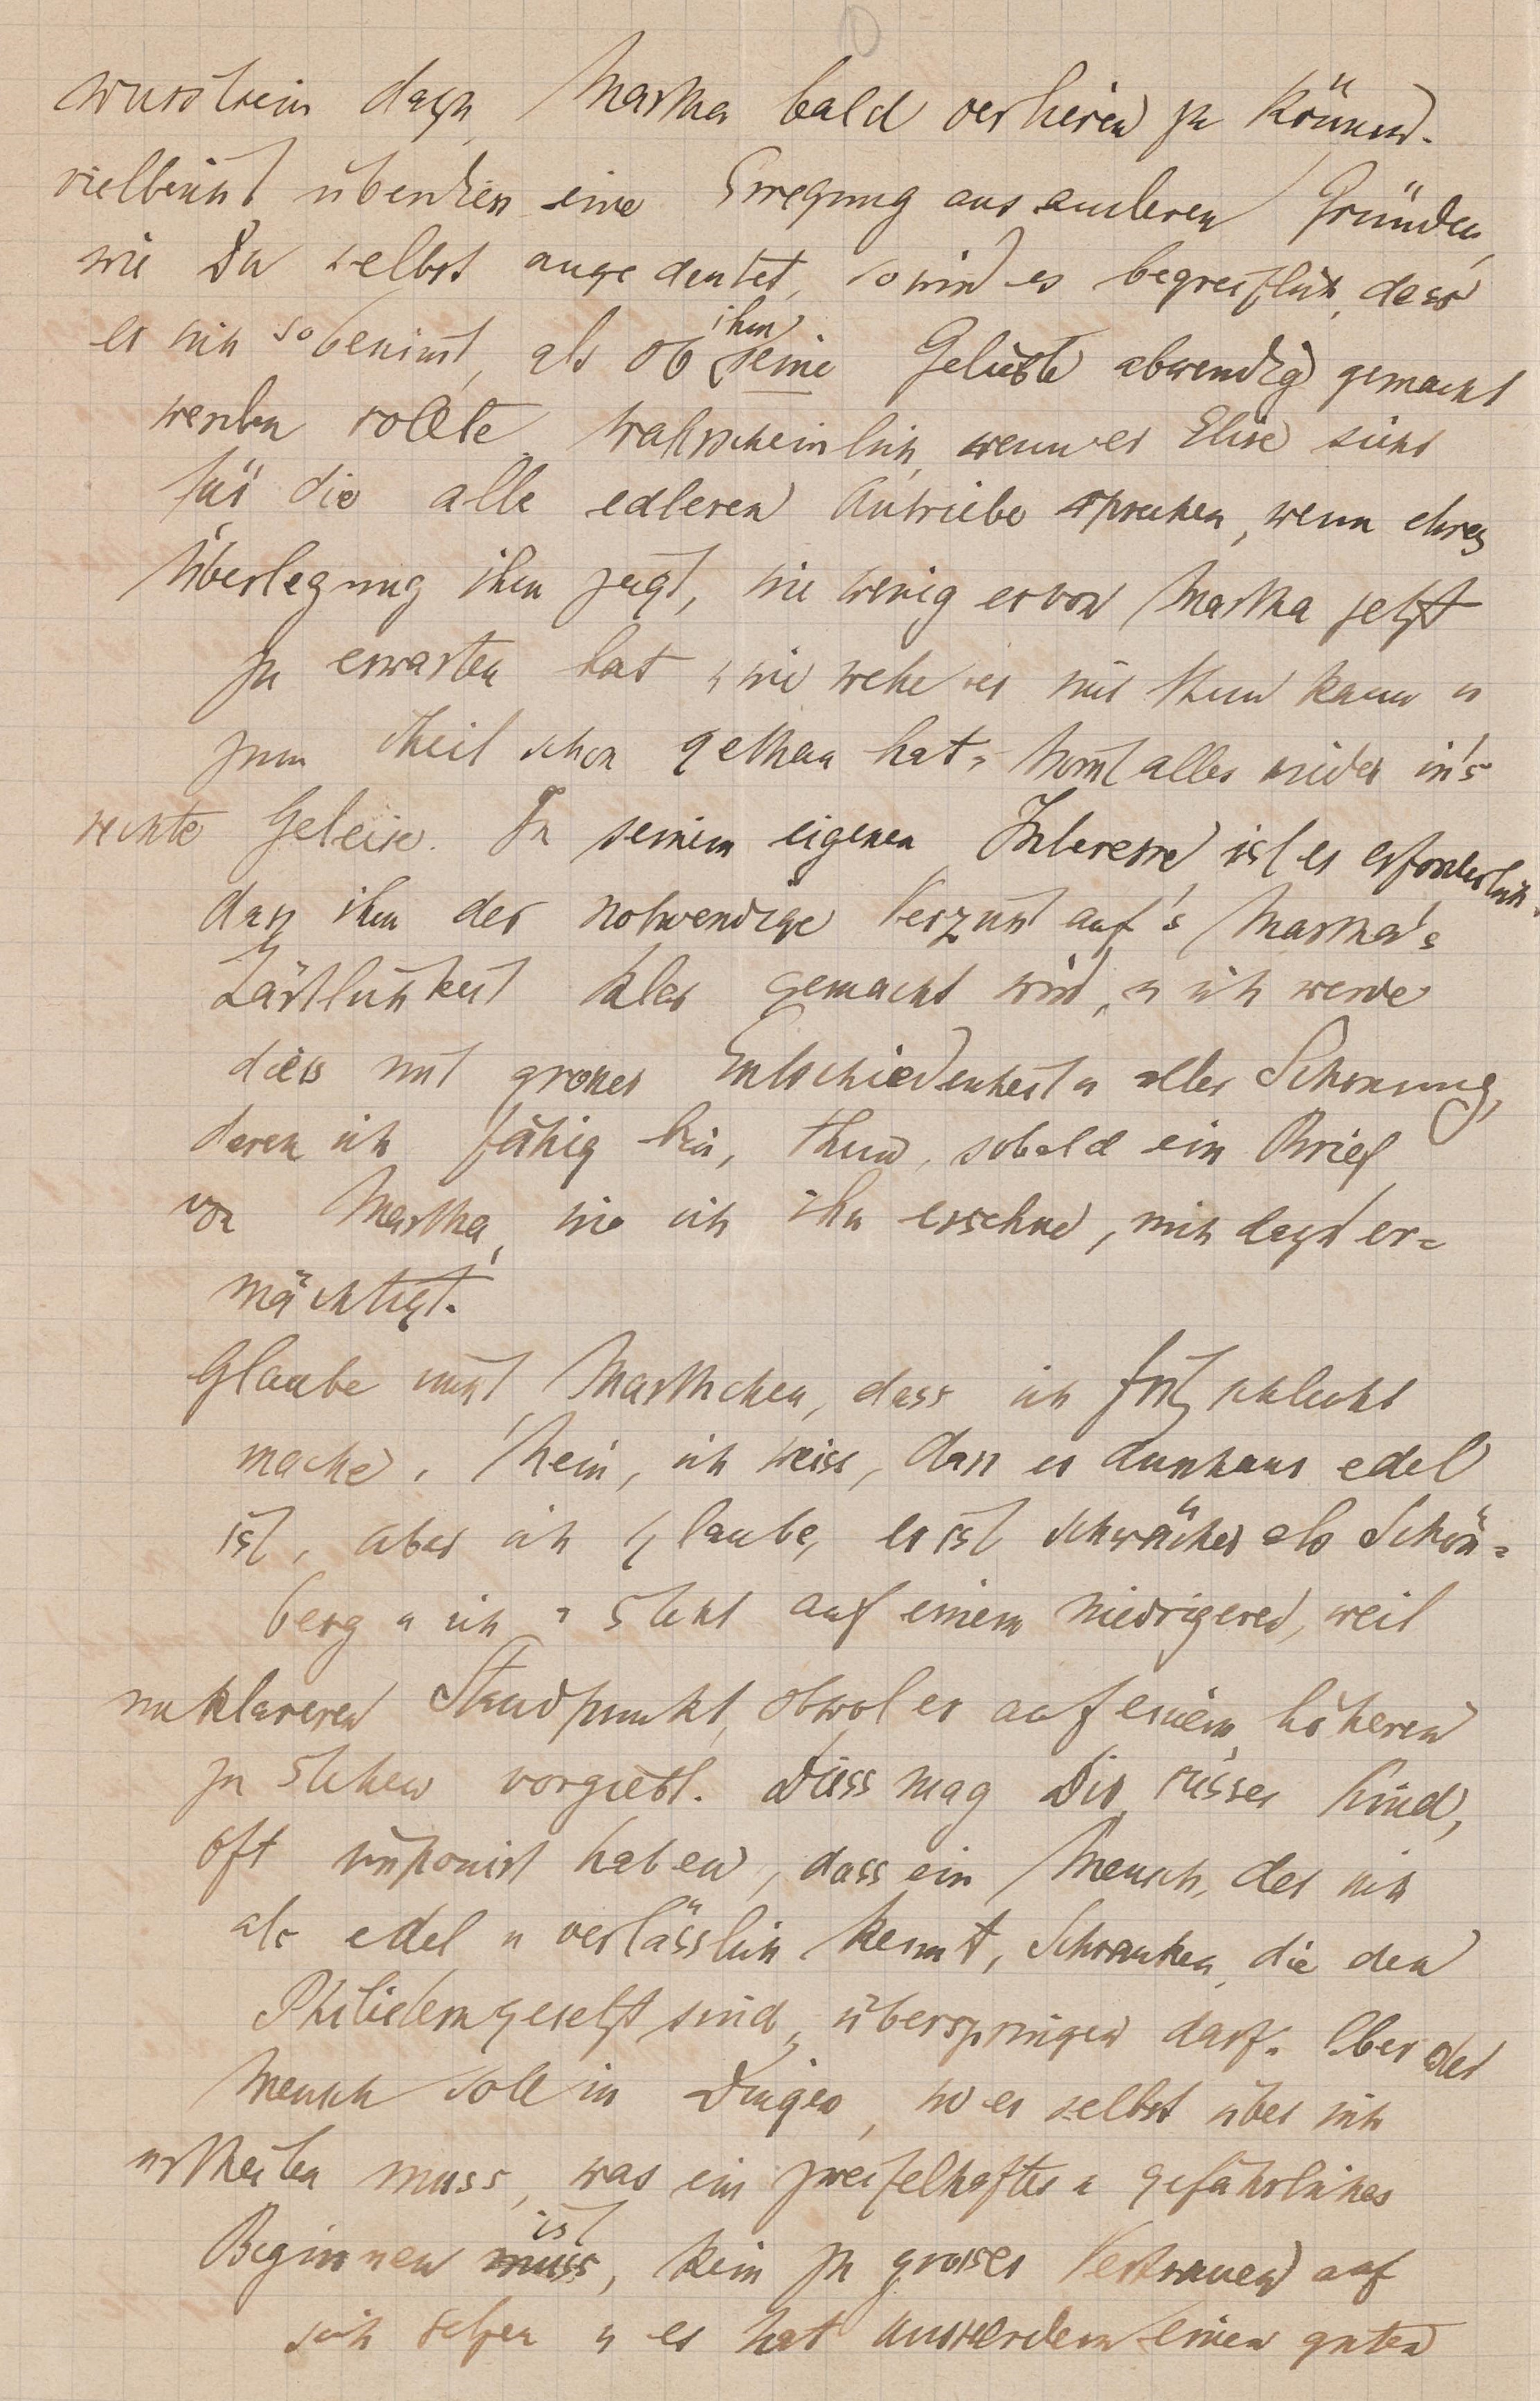 wusstsein dazu, Martha bald verlieren zu können.
vielleicht überdies eine Erregung aus anderen Gründen,
wie Du selbst angedeutet, so wird es begreiflich, dass
er sich so benimt, als ob ihm seine Geliebte abwendig gemacht
werden sollte. Wahrscheinlich, wenn er Elise sieht
für die alle edleren Antriebe sprechen, wenn
Überlegung ihm zeigt, wie wenig er von Martha jetzt
zu erwarten hat u wie wehe er mir thun kann u
zum Theil schon gethan hat, komt alles wieder in's
rechte Geleise. In seinem eigenen Interesse ist es erforderlich,
dass ihm der notwendige Verzicht auf's Martha's
Zärtlichkeit klar gemacht wird, u ich werde
diess mit grosser Entschiedenheit u aller Schonung,
deren ich fähig bin, thun, sobald ein Brief
von Martha, wie ich ihn ersehne, mich dazu er=
mächtigt.
Glaube nicht Marthchen, dass ich Fritz schlecht
mache. Nein, ich weiss, dass er durchaus edel
ist, aber ich glaube, er ist schwächer als Schön=
berg u ich u steht auf einem niedrigeren, weil
unklareren Standpunkt, obwol er auf einem höheren
zu stehen vorgiebt. Diess mag Dir, süsses Kind,
oft imponirt haben, dass ein Mensch, der sich
als edel u verlässlich kennt, Schranken, die den
Philistern gesetzt sind, überspringen darf. Aber der
Mensch soll in Dingen, wo er selbst über sich
urtheilen muss, was ein zweifelhaftes u gefährliches
Beginnen muss ist, kein zu grosses Vertrauen auf
sich setzen u es hat ausserdem einen guten